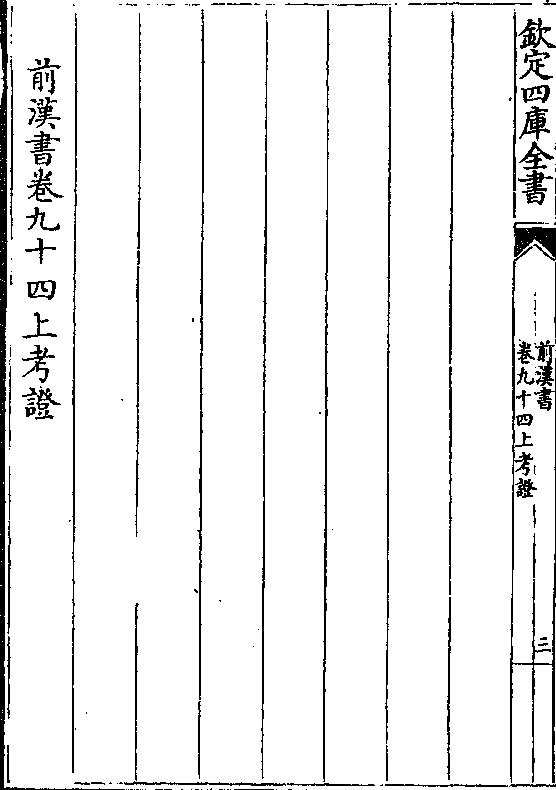 欽定四庫全書
前漢書
卷九十四上考證
三
前漢書卷九十四上考證